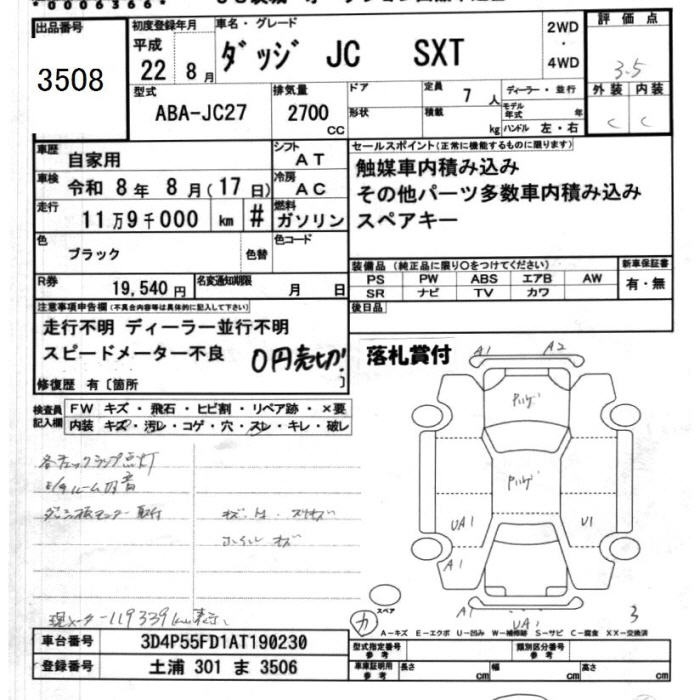 *0006366*
出品番号
3508
初度登録年月
平成
22 8月
車名・グレード
ダッジ JC SXT
2WD
・
4WD
評価点
3.5
外装 内装
C C
型式
ABA-JC27
排気量
2700
CC
ドア
形状
定員
7人
積載
kg
ディーラー・並行
モデル年式 年
ハンドル 左・右
車歴
自家用
シフト
AT
車検
令和 8年 8月(17日)
冷房
AC
走行
11万9千000 km #
燃料
ガソリン
色
ブラック
色替
色コード
R券
19,540円
名変通知期限
月 日
セールスポイント(正常に機能するものに限ります)
触媒車内積み込み
その他パーツ多数車内積み込み
スペアキー
装備品(純正品に限り○をつけてください)
PS PW ABS エアB AW
SR ナビ TV カワ
新車保証書
有・無
後日品
注意事項申告欄(不具合内容等は具体的に記入して下さい)
走行不明 ディーラー並行不明
スピードメーター不良
0円売切!
修復歴 有〔箇所 〕
落札賞付
検査員記入欄
FW キズ・飛石・ヒビ割・リペア跡・×要
内装 キズ・汚レ・コゲ・穴・スレ・キレ・破レ
各チェックランプ点灯
取付
キズ
現メーター119339km表示
A1 A2
UA1
A1
U1
A1
UA1
3
スペア
カ
A-キズ E-エクボ U-凹み W-補修跡 S-サビ C-腐食 XX-交換済
車台番号
3D4P55FD1AT190230
登録番号
土浦 301 ま 3506
型式指定番号
参考
類別区分番号
参考
車庫証明用
参考
長さ cm 幅 cm 高さ cm